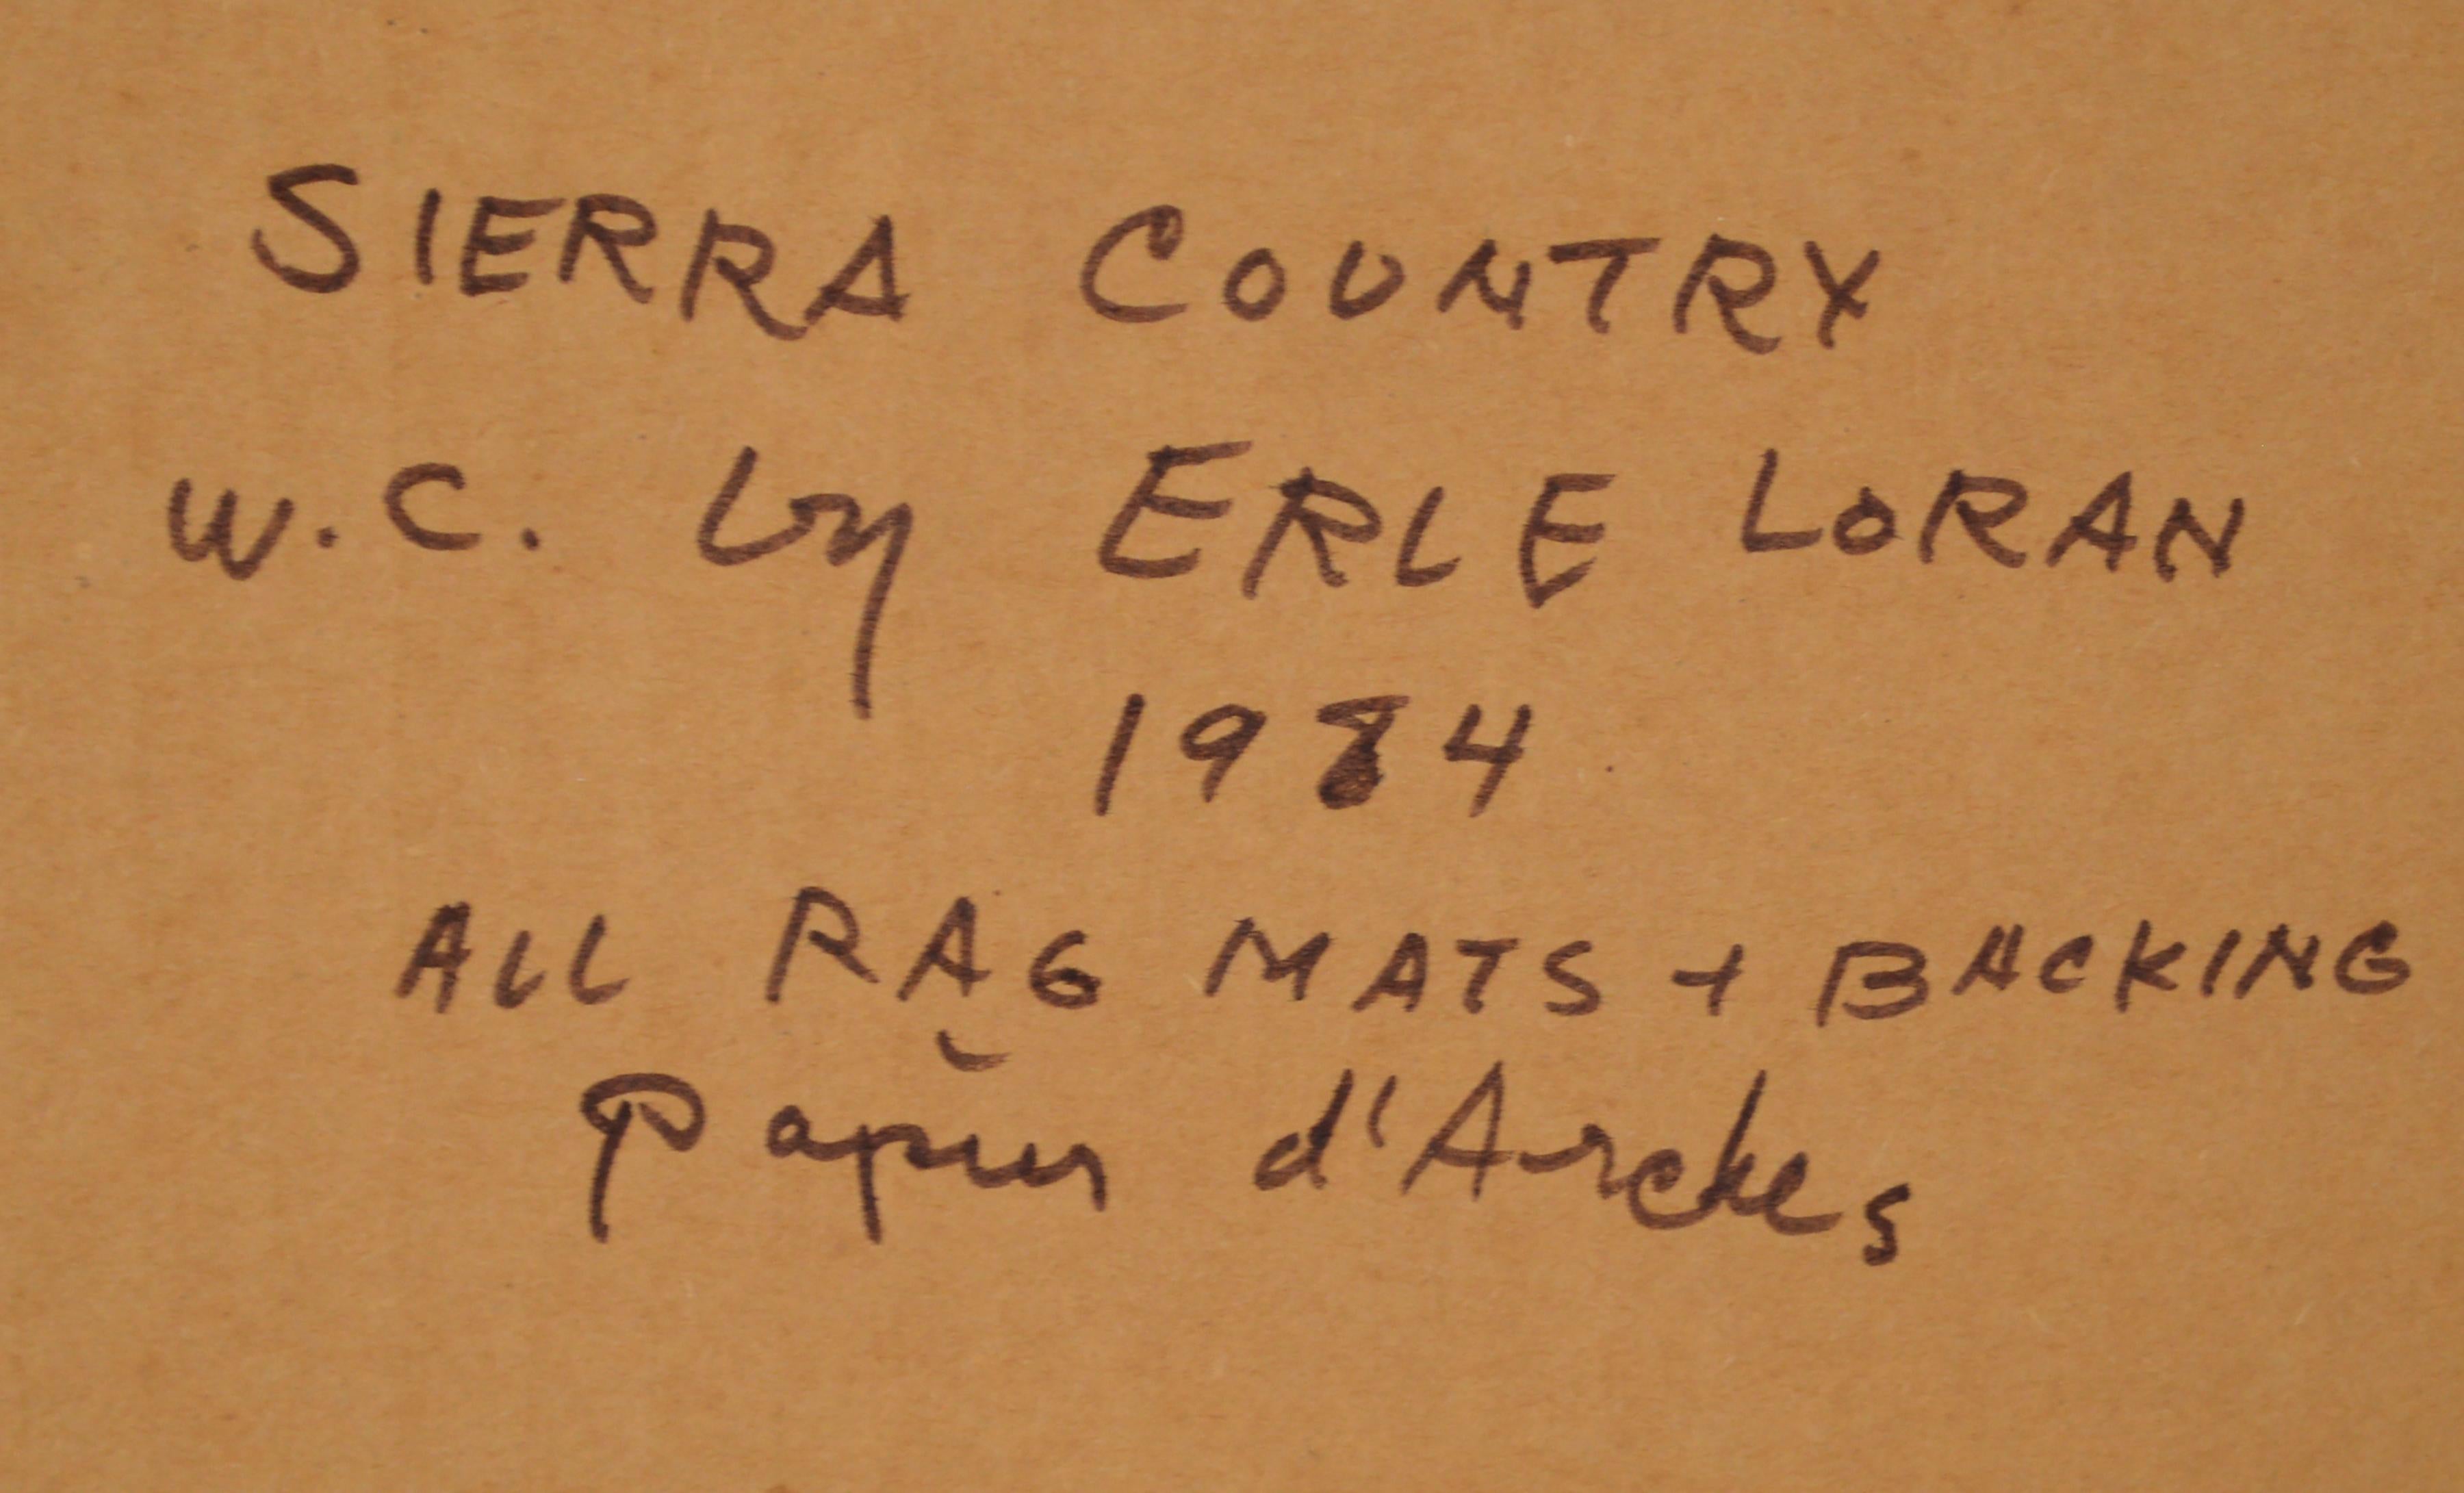 SIERRA COUNTRY
W.C. by ERLE LORAN
1984
ALL RAG MATS + BACKING
Papier d'Arches